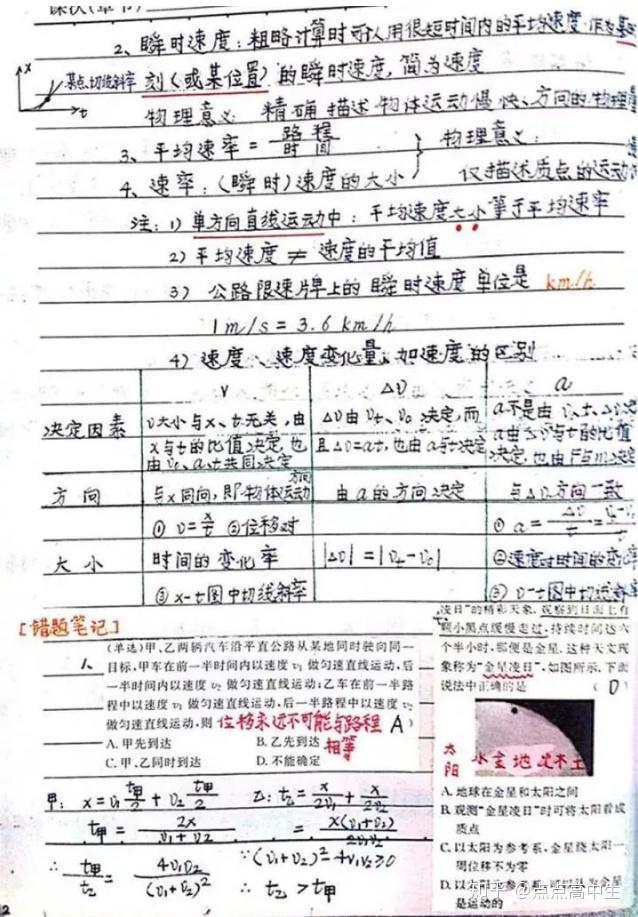 课次(章节)
2、瞬时速度:粗略计算时可认用很短时间内的平均速度作为某
x
某点切线斜率
t
刻(或某位置)的瞬时速度,简为速度
物理意义:精确描述物体运动慢快、方向的物理量
3、平均速率=路程/时间
物理意义:
4、速率:(瞬时)速度的大小
仅描述质点的运动
注:1)单方向直线运动中:平均速度大小等于平均速率
2)平均速度≠速度的平均值
3)公路限速牌上的瞬时速度单位是 km/h
1m/s=3.6km/h
4)速度、速度变化量、加速度的区别
v Δv a
决定因素
v大小与x、t无关,由x与t的比值决定,也由v₀、a、t共同决定
Δv由vt、v₀决定,而且Δv=at,也由a与t决定
a不是由v、t、Δv
a由Δv与t的比值决定,也由F与m决定
方向
与x同向,即物体运动方向
由a的方向决定
与Δv方向一致
大小
① v=x/t ②位移对时间的变化率
③x-t图中切线斜率
|Δv|=|vt-v₀|
① a=Δv/t=
②速度对时间的变化率
③v-t图中切线斜率
[错题笔记]
1、
(单选)甲、乙两辆汽车沿平直公路从某地同时驶向同一
目标,甲车在前一半时间内以速度 v₁ 做匀速直线运动,后
一半时间内以速度 v₂ 做匀速直线运动;乙车在前一半路
程中以速度 v₁ 做匀速直线运动,后一半路程中以速度 v₂
做匀速直线运动,则 位移永远不可能与路程相等 ( A )
A. 甲先到达 B. 乙先到达
C. 甲、乙同时到达 D. 不能确定
甲:x=v₁t甲/2+v₂t甲/2
t甲=2x/(v₁+v₂)
∴t甲/t乙=4v₁v₂/(v₁+v₂)²
乙:t乙=x/2v₁+x/2v₂
=x(v₁+v₂)/2v₁v₂
∵(v₁+v₂)²-4v₁v₂≥0
∴t乙>t甲
凌日”的精彩天象,观察到日面上有
颗小黑点缓慢走过,持续时间达六
个半小时,那便是金星,这种天文现
象称为“金星凌日”,如图所示,下面
说法中正确的是 ( D )
太阳 水金地火木土
A. 地球在金星和太阳之间
B. 观测“金星凌日”时可将太阳看成
质点
C. 以太阳为参考系,金星绕太阳一
周位移不为零
D. 以太阳为参考系,可以认为金星
是运动的
知乎 @点点高中生
2